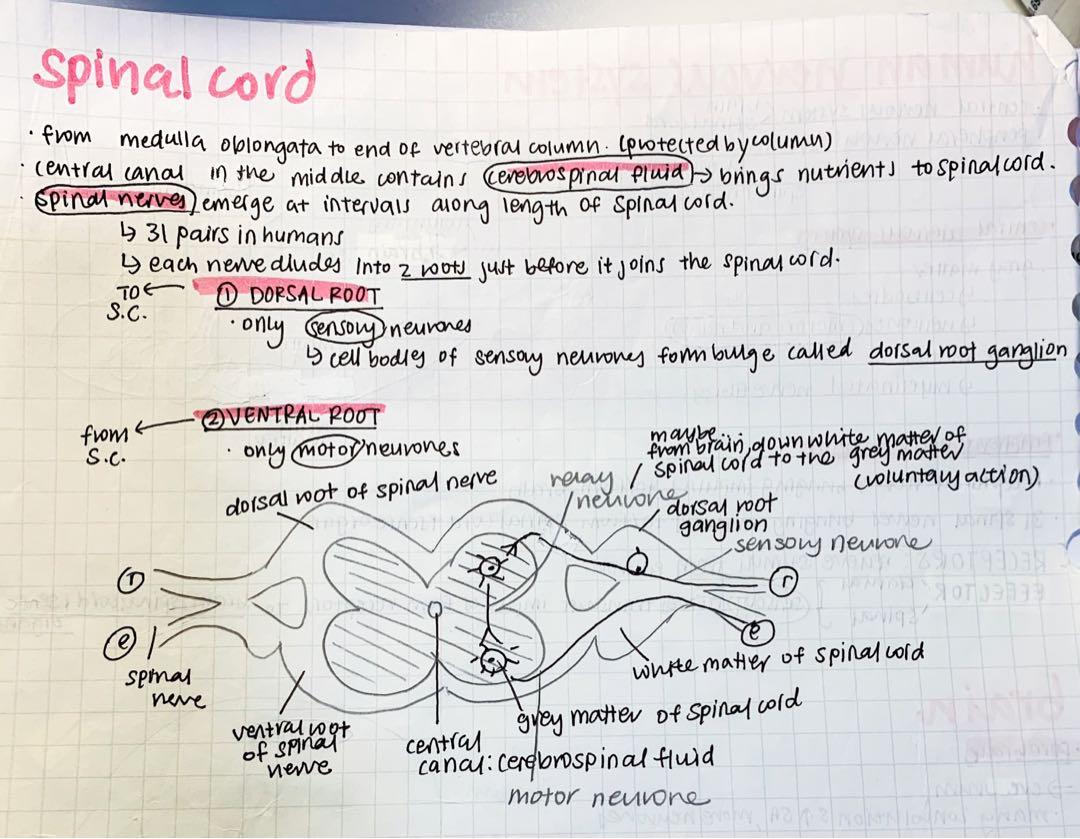 spinal cord
· from medulla oblongata to end of vertebral column. (protected by column)
· central canal in the middle contains cerebrospinal fluid → brings nutrients to spinal cord.
· spinal nerves emerge at intervals along length of spinal cord.
↳ 31 pairs in humans
↳ each nerve divides into 2 roots just before it joins the spinal cord.
TO S.C. ← ① DORSAL ROOT
· only sensory neurones
↳ cell bodies of sensory neurones form bulge called dorsal root ganglion
from S.C. ← ② VENTRAL ROOT
· only motor neurones
maybe
from brain, down white matter of
spinal cord to the grey matter
(voluntary action)
dorsal root of spinal nerve
relay
neurone
dorsal root
ganglion
sensory neurone
r
e
r
e
spinal
nerve
white matter of spinal cord
ventral root
of spinal
nerve
grey matter of spinal cord
central
canal: cerebrospinal fluid
motor neurone
human nervous system
brain